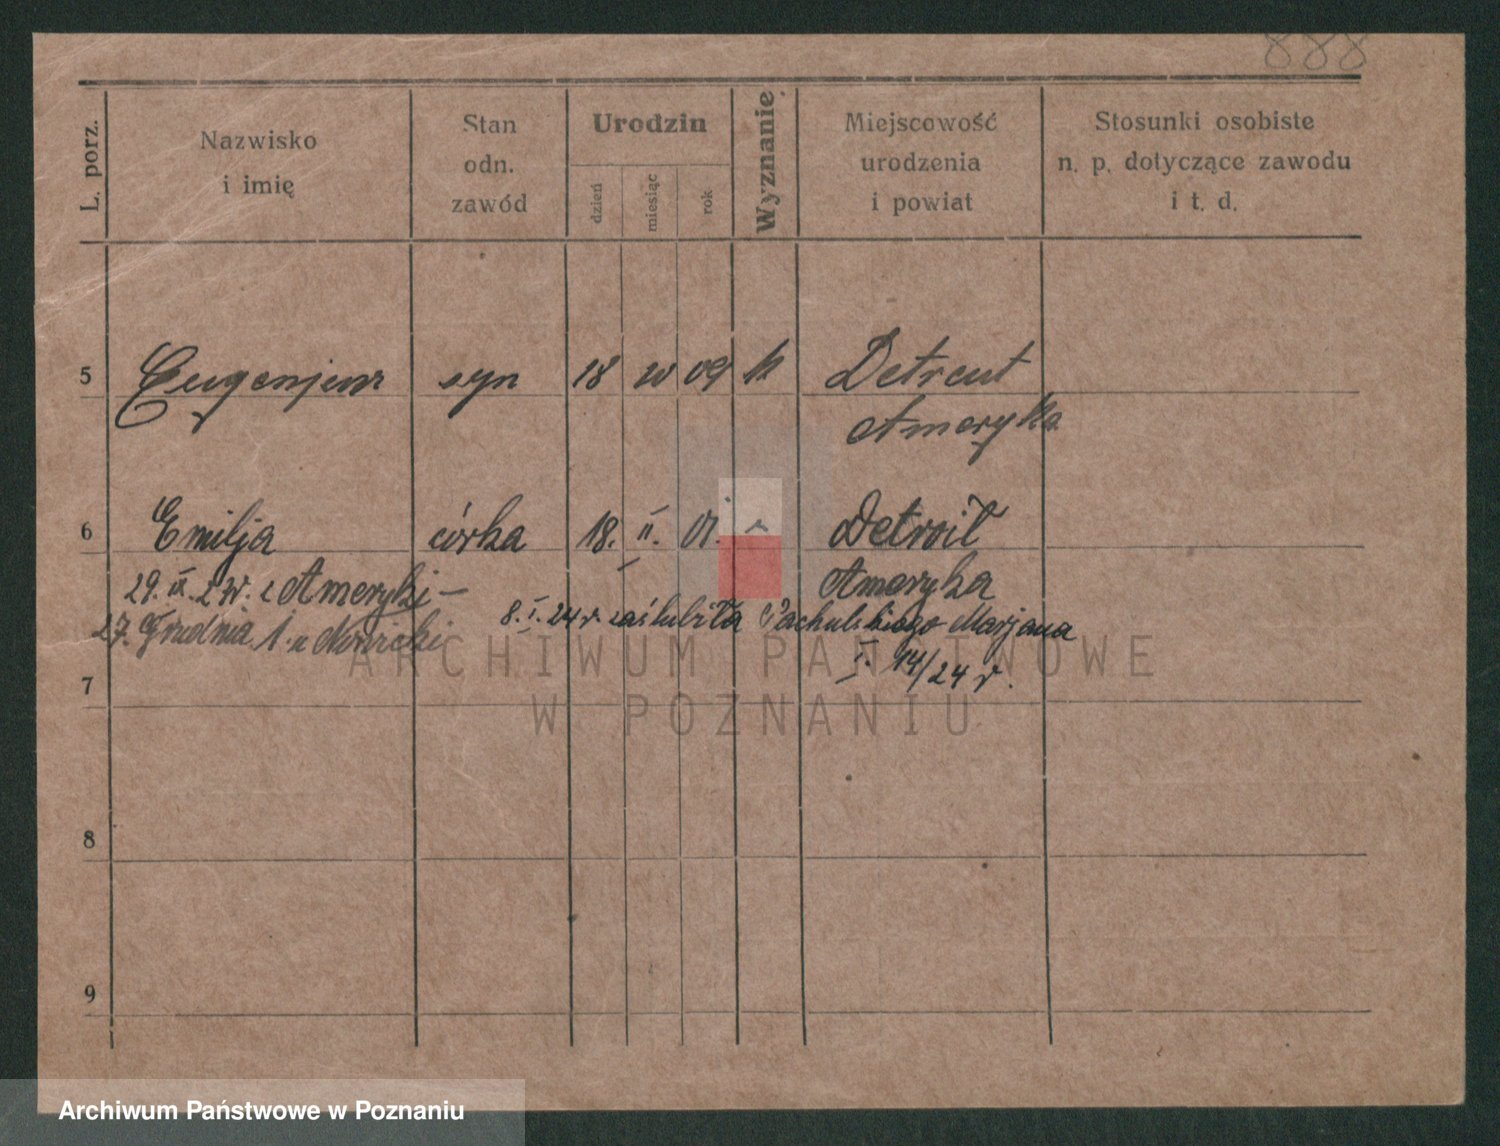 888
L. porz.
Nazwisko
i imię
Stan
odn.
zawód
Urodzin
dzień
miesiąc
rok
Wyznanie
Miejscowość
urodzenia
i powiat
Stosunki osobiste
n. p. dotyczące zawodu
i t. d.
5 Eugenjusz syn 18 09 k Detreut
Ameryka
6 Emilja córka 18. II. 01. Detroit
29. IX. 23r. z Ameryki – Ameryka
8. I. 24 r. zaślubiła Pachulskiego Marjana
27. Grudnia 1. u Nowicki
I. 14/24 r.
7
8
9
ARCHIWUM PAŃSTWOWE
W POZNANIU
Archiwum Państwowe w Poznaniu